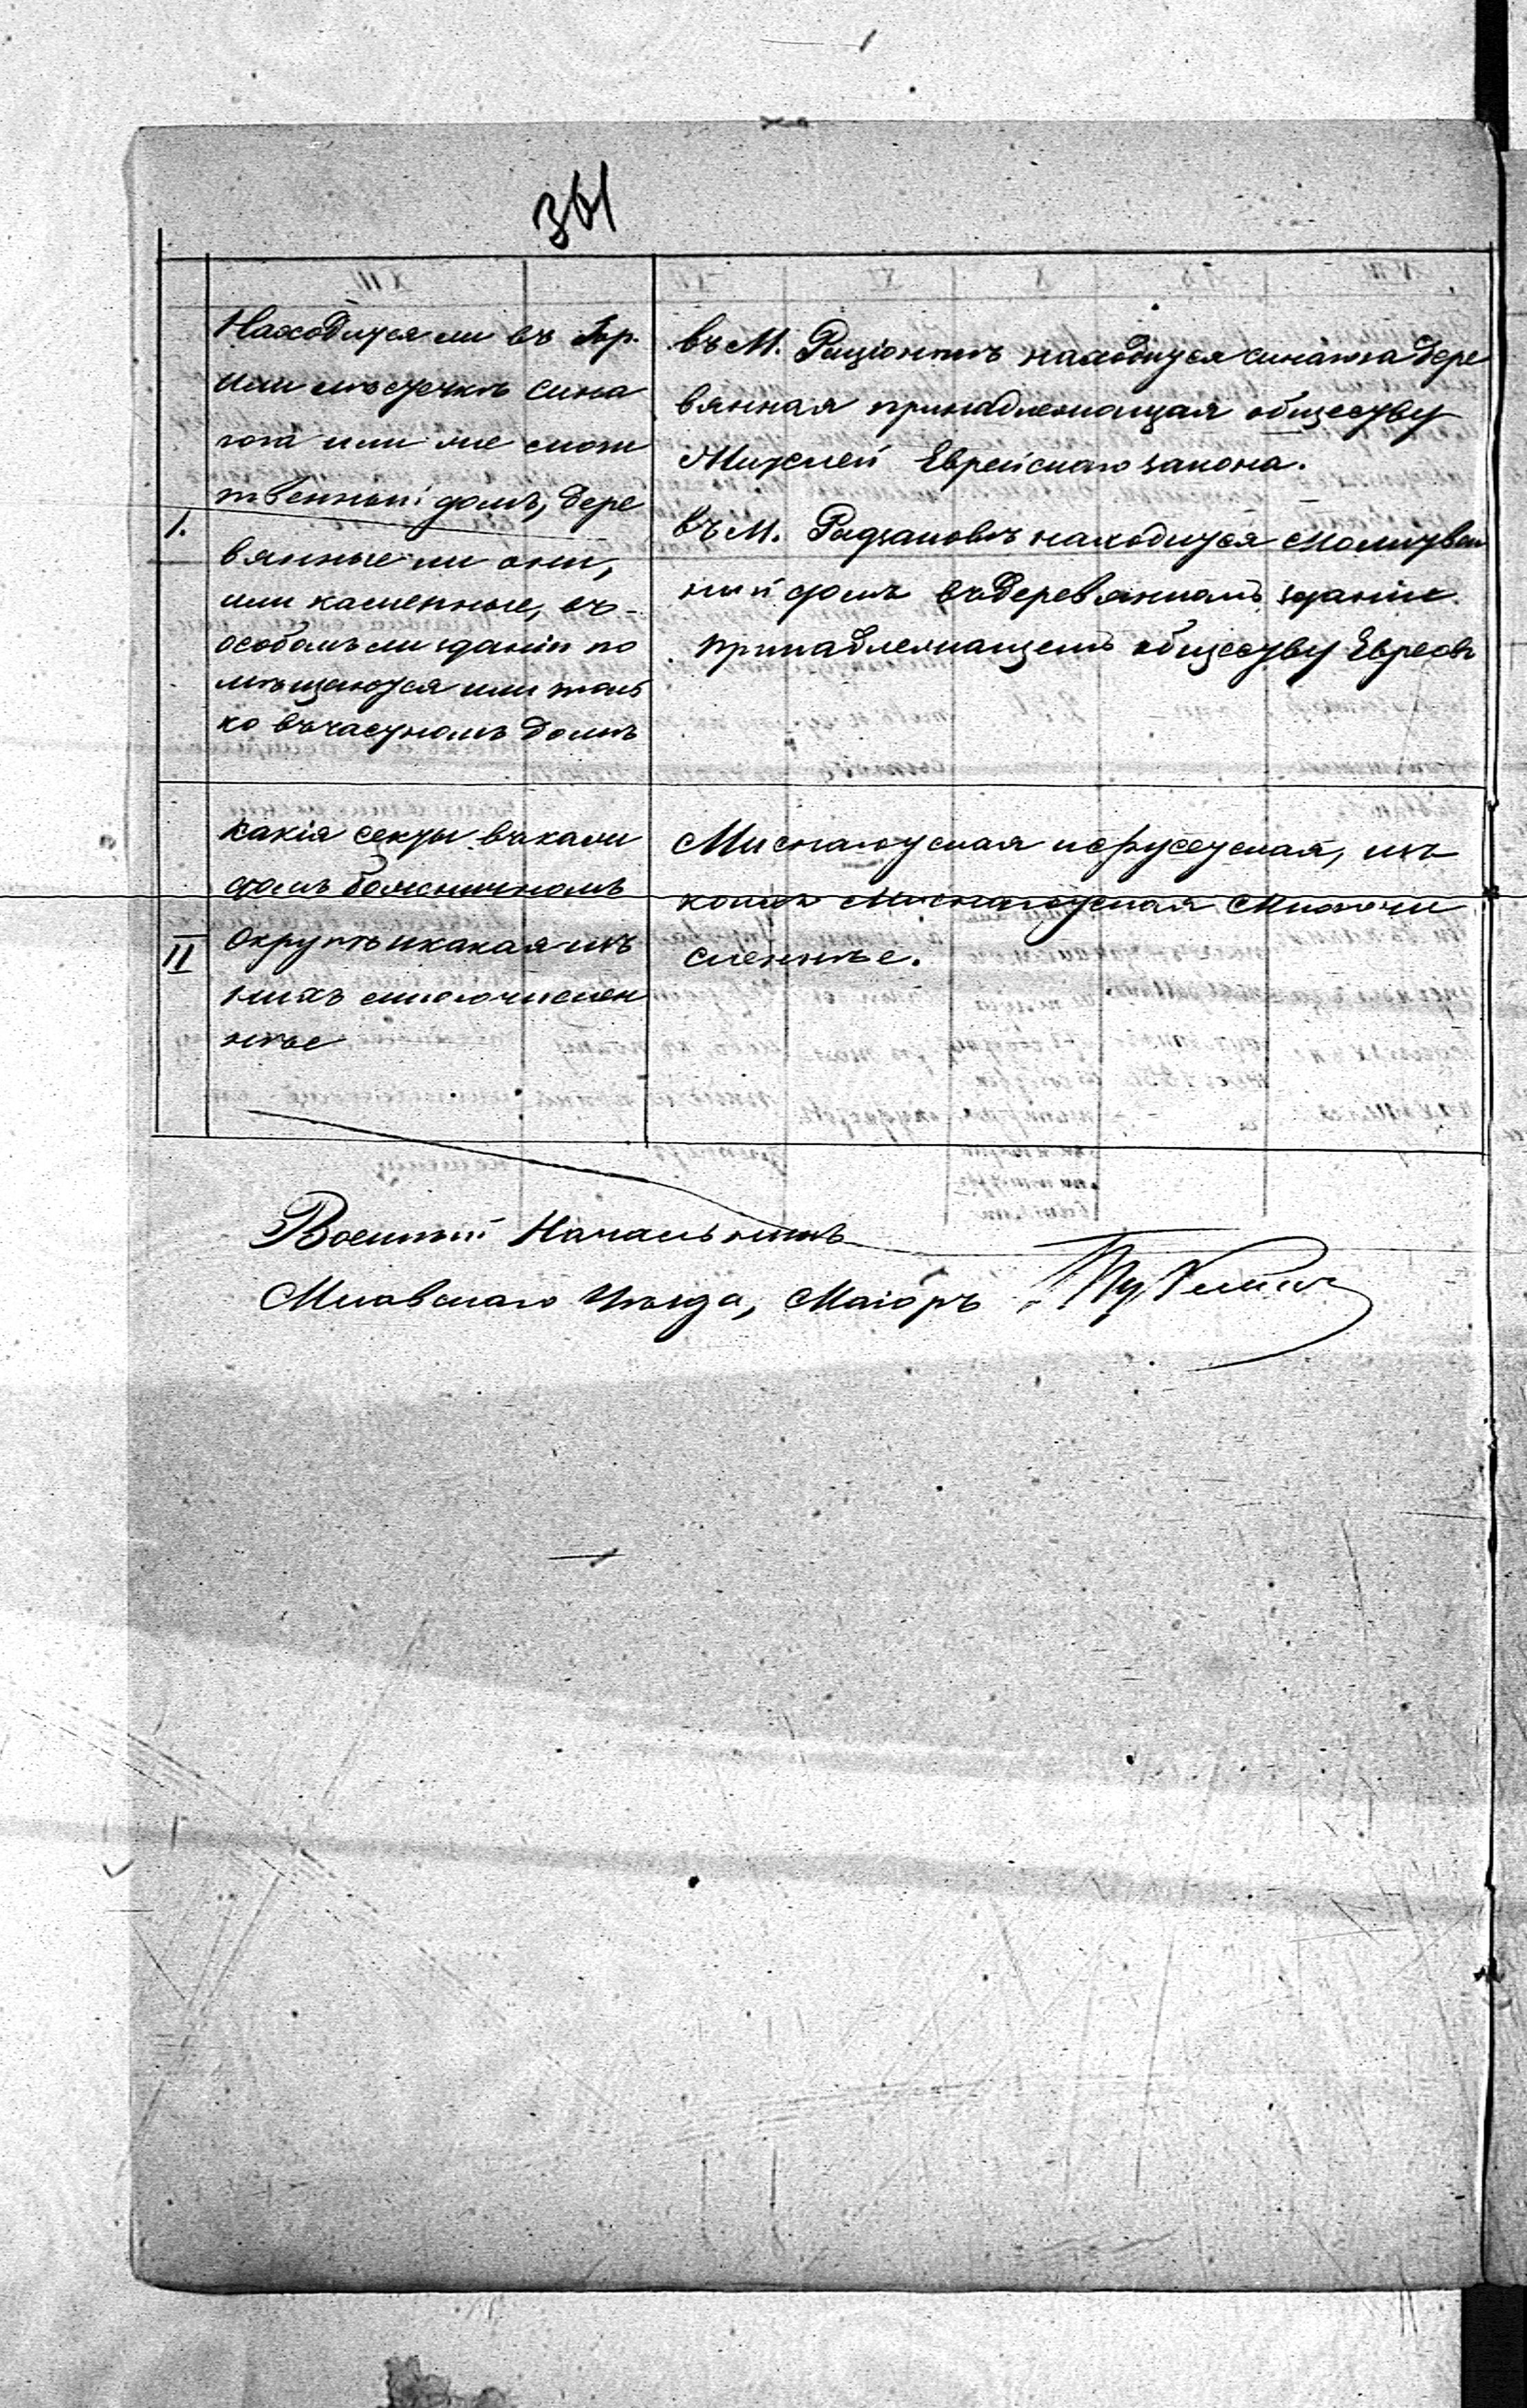 361
Находится ли въ гор.
или мѣстечкѣ сина
гога или же моли
твенный домъ, дере
I.
вянные ли они,
или каменные, въ
особомъ ли зданіи по
мѣщаются или толь
ко въ частномъ домѣ
въ М. Рационжѣ находится синагога дере
вянная принадлежащая обществу
Жителей Еврейскаго закона.
въ М. Радзановѣ находится Молитвен
ный домъ въ деревянномъ зданіи
принадлежащемъ обществу Евреовъ
какія секты въ каж
домъ божничномъ
II
округѣ и какая изъ
нихъ многочислен
нѣе
Миснагдская и изъ
коихъ Миногочи
сленнѣе.
Военный Начальникъ
Млавскаго Уѣзда, Маіоръ